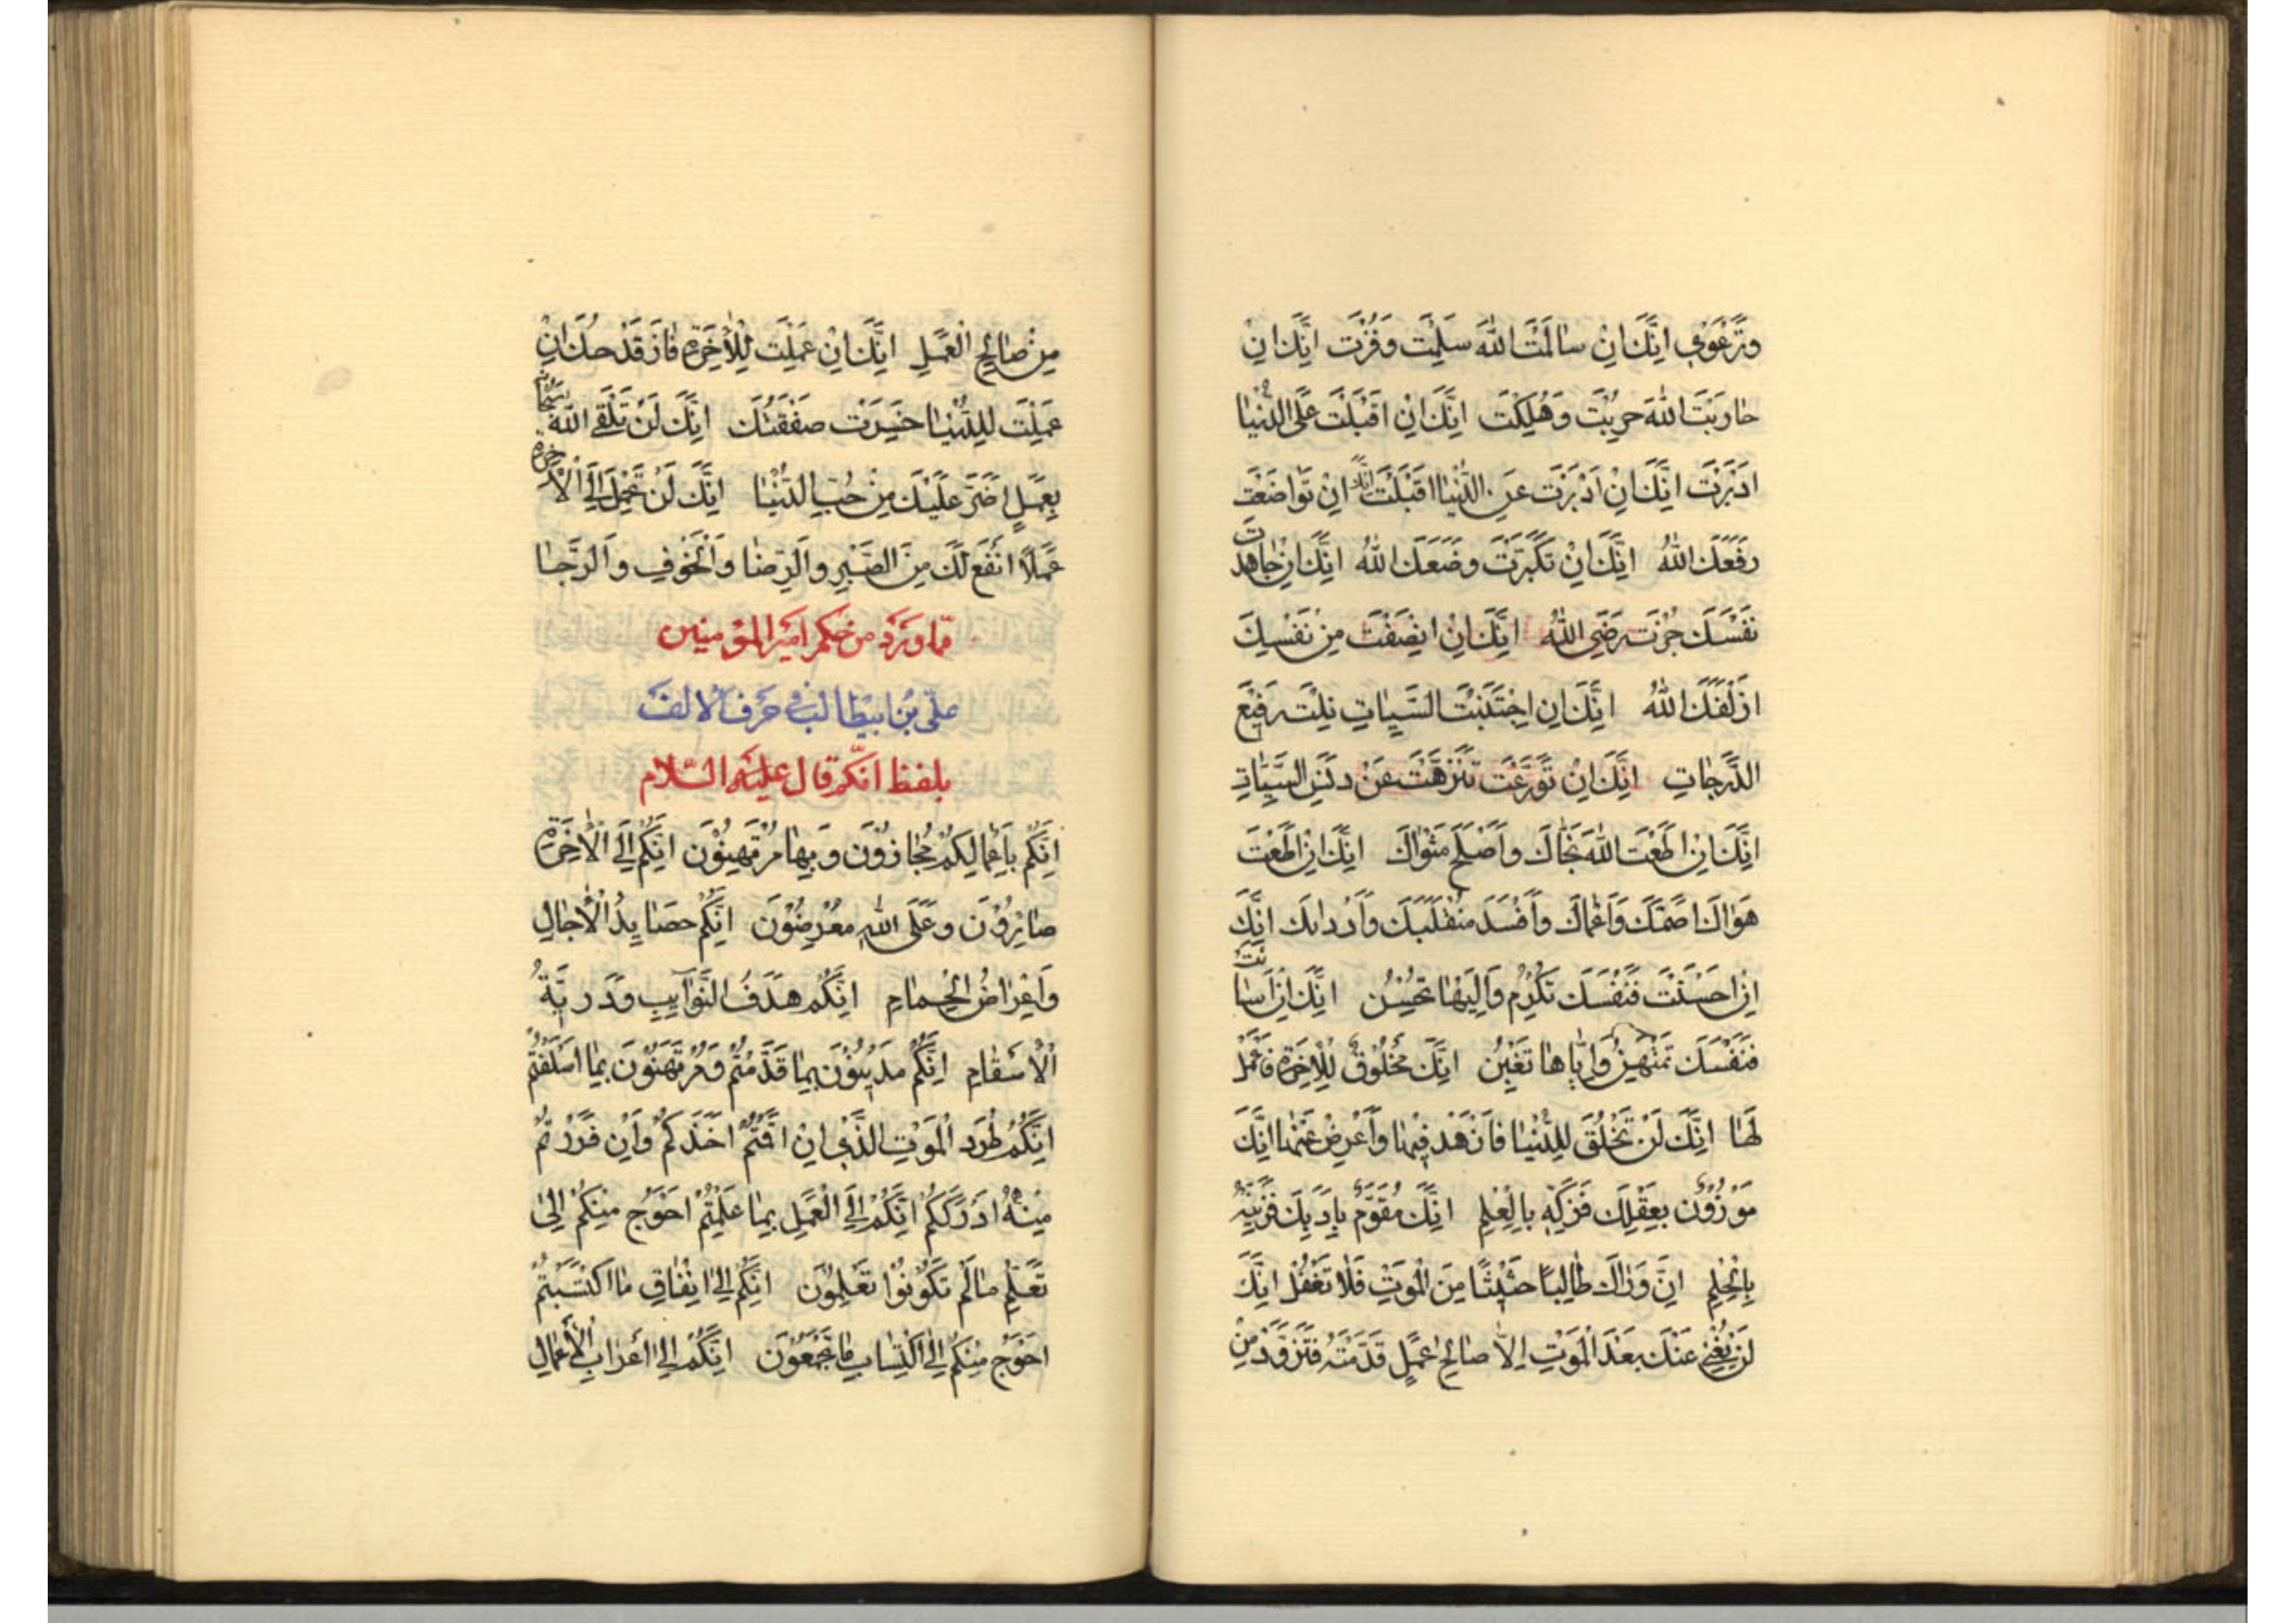 وتَرْعَوِي اِنَّكَ اِنْ سالَمْتَ اللهَ سَلِمْتَ وَفُزْتَ اِنَّكَ اِنْ
حارَبْتَ اللهَ حرِبْتَ وَهَلِكْتَ اِنَّكَ اِنْ اَقْبَلْتَ عَلَى الدُّنْيا
اَدْبَرَتْ اِنَّكَ اِنْ اَدْبَرْتَ عَنِ الدُّنْيا اَقْبَلَتْ اِنَّكَ اِنْ تَواضَعْتَ
رفَعَكَ اللهُ اِنَّكَ اِنْ تَكَبَّرْتَ وضَعَكَ اللهُ اِنَّكَ اِنْ جاهَدْتَ
نَفْسَكَ حُزْتَ رِضَى اللهِ اِنَّكَ اِنْ اَنْصَفْتَ مِنْ نَفْسِكَ
اَزْلَفَكَ اللهُ اِنَّكَ اِنِ اجْتَنَبْتَ السَّيِّاتِ نِلْتَ رَفِيْعَ
الدَّرَجاتِ اِنَّكَ اِنْ تَوَرَّعْتَ تَنَزَّهْتَ عَنْ دَنَسِ السَّيِّاتِ
اِنَّكَ اِنْ اَطَعْتَ اللهَ نَجّاكَ واَصْلَحَ مَثْواكَ اِنَّكَ اِنْ اَطَعْتَ
هَواكَ اَصَمَّكَ وَاَعْماكَ واَفْسَدَ مُنْقَلَبَكَ وَاَرْداكَ اِنَّكَ
اِنْ اَحْسَنْتَ فَنَفْسَكَ تُكْرِمُ واِلَيْها تُحْسِنُ اِنَّكَ اِنْ اَسَاتَ
فَنَفْسَكَ تَمْتَهِنُ وَاِيّاها تَغْبِنُ اِنَّكَ مَخْلُوْقٌ لِلْاخِرَةِ فَاعْمَلْ
لَها اِنَّكَ لَنْ تُخْلَقَ لِلدُّنْيا فَازْهَدْ فِيْها واَعْرِضْ عَنْها اِنَّكَ
مَوْزُوْنٌ بِعَقْلِكَ فَزَكِّهِ بِالْعِلْمِ اِنَّكَ مُقَوَّمٌ بِاَدَبِكَ فَزَيِّنْهُ
بِالْحِلْمِ اِنَّ وَراكَ طالِبًا حَثِيْثًا مِنَ الْمَوْتِ فَلا تَغْفُلْ اِنَّكَ
لَنْ يُغْنِيَ عَنْكَ بَعْدَ الْمَوْتِ اِلاّ صالِحُ عَمَلٍ قَدَّمْتَهُ فَتَزَوَّدْ مِنْ
مِنْ صالِحِ الْعَمَلِ اِنَّكَ اِنْ عَمِلْتَ لِلْاخِرَةِ فازَ قَدْحُكَ اِنَّكَ اِنْ
عَمِلْتَ لِلدُّنْيا خَسِرَتْ صَفْقَتُكَ اِنَّكَ لَنْ تَلْقَى اللهَ سُبْحانَهُ
بِعَمَلٍ اَضَرَّ عَلَيْكَ مِنْ حُبِّ الدُّنْيا اِنَّكَ لَنْ تَحْمِلَ اِلَى الْاخِرَةِ
عَمَلاً اَنْفَعَ لَكَ مِنَ الصَّبْرِ والرِّضا والْخَوْفِ والرَّجا
مما ورد من حكم امير المؤمنين
علي بن ابيطالب في حرف الالف
بلفظ انكم قال عليه السلام
اِنَّكُمْ بِاَعْمالِكُمْ مُجازَوْنَ وَبِها مُرْتَهِنُوْنَ اِنَّكُمْ اِلَى الْاخِرَةِ
صائِرُوْنَ وعَلَى اللهِ مَعْرُوضُوْنَ اِنَّكُمْ حَصايِدُ الْاجالِ
وَاَغْراضُ الْحِمامِ اِنَّكُمْ هَدَفُ النَّوايِبِ وَدَرِيَّةُ
الْاَسْقامِ اِنَّكُمْ مَدِيْنُوْنَ بِما قَدَّمْتُمْ وَمُرْتَهَنُوْنَ بِما اَسْلَفْتُمْ
اِنَّكُمْ طُرَدَ الْمَوْتِ الَّذِي اِنْ اَقَمْتُمْ اَخَذَكُمْ وَاِنْ فَرَرْتُمْ
مِنْهُ اَدْرَكَكُمْ اِنَّكُمْ اِلَى الْعَمَلِ بِما عَلِمْتُمْ اَحْوَجُ مِنْكُمْ اِلى
تَعَلُّمِ مالَمْ تَكُوْنُوْا تَعْلَمُوْنَ اِنَّكُمْ اِلى اِنْفاقِ ما اكْتَسَبْتُمْ
اَحْوَجُ مِنْكُمْ اِلَى اكْتِسابِ ما تَجْمَعُوْنَ اِنَّكُمْ اِلى اَعْرابِ الْاَعْمالِ